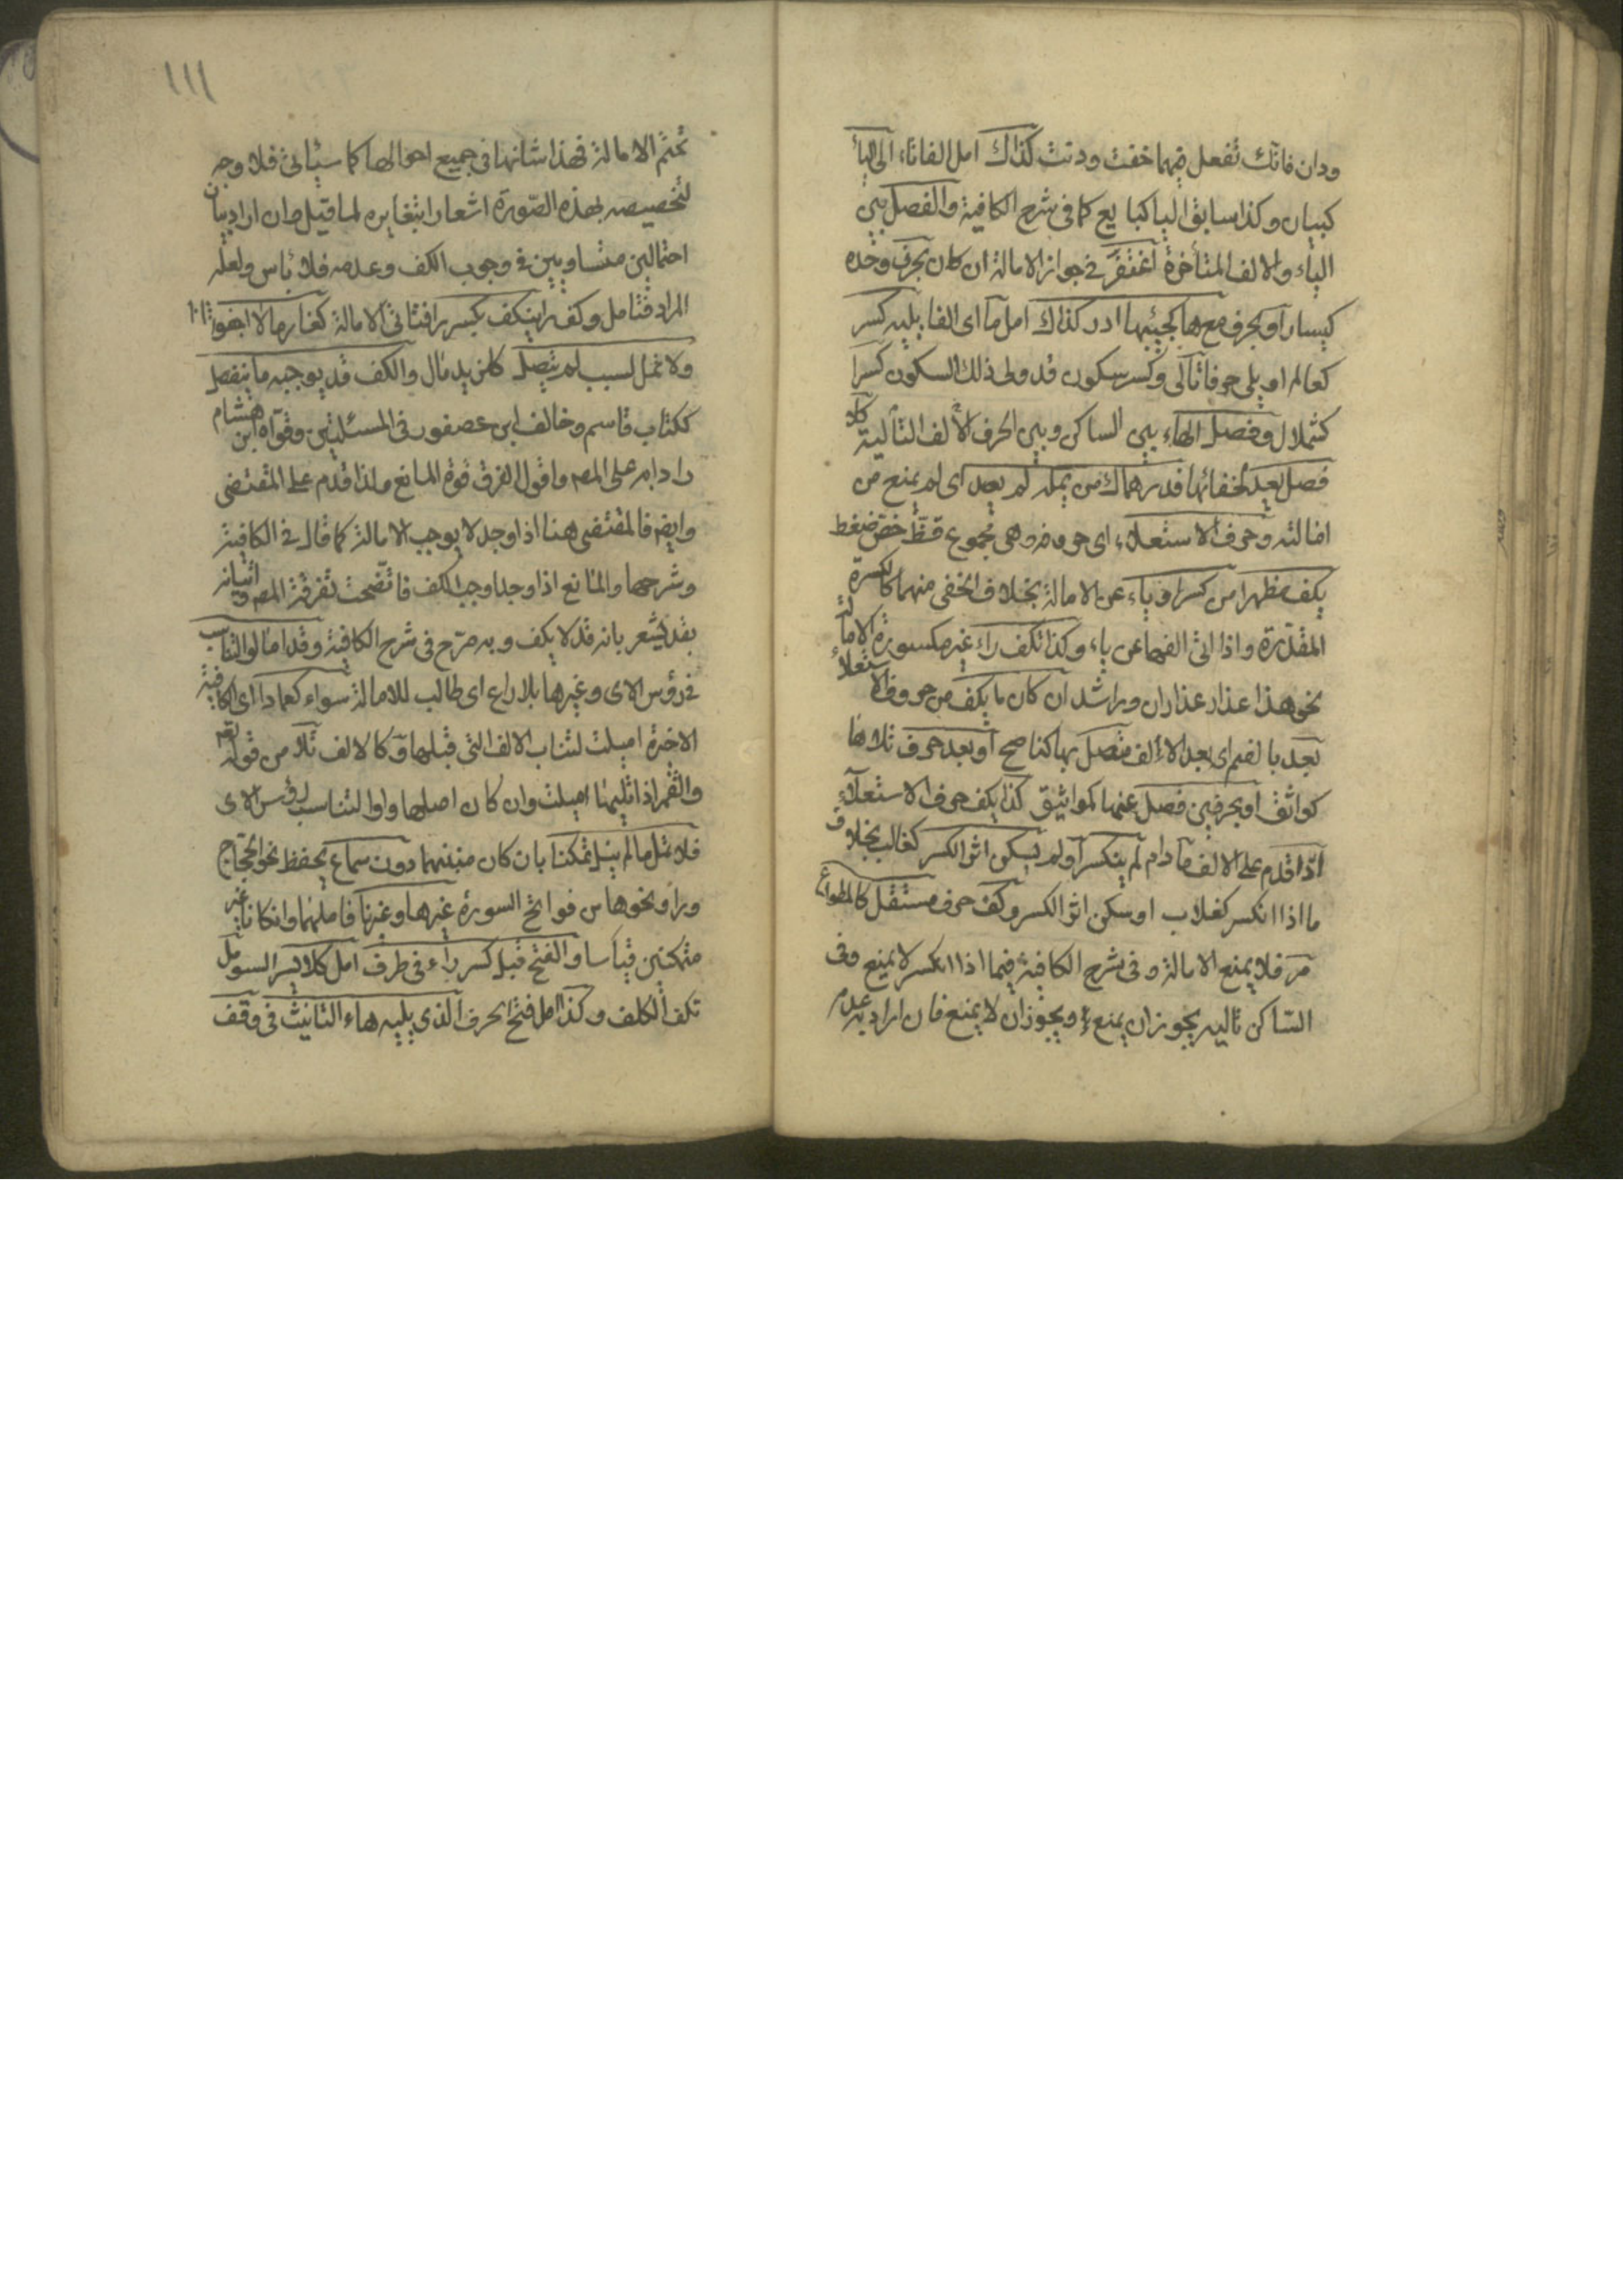 ودان فانك تفعل فيهما خفت ودنت كذاك امل الفا تاء الى اليا
كبيان وكذا سابق اليا كبايع كما في شرح الكافية والفصل بين
الياء والالف المتأخرة اغتفر في جواز الامالة ان كان بحرف وحده
كيسار او بحرف مع ها كجيبها ادر كذاك امل ما اى الفا يليه كسر
كعالم او يلى حرفا تالى وكسر سكون قد ولى ذلك السكون كسرا
كشملال وفصل الهاء بين الساكن وبين الحرف الالف التالية كلا
فصل يعد لخفائها فدرهماك من يمله لم يصد اى لم يمنع من
امالته وحرف الاستعلاء اى حروفه وهى مجموع قظ خص ضغط
يكف مظهرا من كسر او ياء عن الامالة بخلاف الخفى منهما كالكسرة
المقدرة واذا اتى الفها عن ياء وكذا تكف راء غير مكسورة الامالة
نحو هذا عذار عذاران وراشد ان كان ما يكف من حروف الاستعلاء
بعد بالضم اى بعد الالف متصل بها كناصح او بعد حرف تلاها
كواثق او بحرفين فصل عنها كمواثيق كذا يكف حرف الاستعلاء
اذا قدم على الالف ما دام لم ينكسر او لم يسكن اثر الكسر كغالب بخلاف
ما اذا انكسر كغلاب او سكن اثر الكسر وكف حرف مستقل كالمطواع
مر فلا يمنع الامالة وفى شرح الكافية فيما اذا انكسر لا يمنع وفى
الساكن تاليه يجوز ان يمنع ويجوز ان لا يمنع فان اراد به عدم
١١١
تحتم الامالة فهذا شانها فى جميع احوالها كما سيأتى فلا وجه
لتخصيصه بهذه الصورة اشعارا بتغايره لما قبل وان اراد بيان
احتمالين متساويين فى وجوب الكف وعدمه فلا بأس ولعله
المراد فتأمل وكف را ينكف بكسر را فتأتى الامالة كغارما لا اجفو
ولا تمل لسبب لم يتصل كلزيد مال والكف قد يوجبه ما ينفصل
ككتاب قاسم وخالف ابن عصفور فى المسئلتين وقواه ابن هشام
رادا به على المصـ واقول الفرق قوة المانع ولذا قدم على المقتضى
وايضـ فالمقتضى هنا اذا وجد لا يوجب الامالة كما قال فى الكافية
وشرحها والمانع اذا وجد اوجب الكف فاتضحت تفرقة المصـ واتيانه
بقد يشعر بانه قد لا يكف وبه صرح فى شرح الكافية وقد امالوا لتناسب
فى رؤس الاى وغيرها بلا داع اى طالب للامالة سواه كعمادا اى كالفه
الاخيرة اميلت لتناسب الالف التى قبلها وكالالف تلا من قوله تعـ
والقمر اذا تليها اميلت وان كان اصلها واوا لتناسب رؤس الاى
فلا تمل ما لم ينل تمكنا بان كان مبنيا دون سماع يحفظ نحو الحجاج
ورا ونحوها من فواتح السورة غير ها وغير نا فاملهما وان كانا غير
متمكنين قياسا والفتح قبل كسر راء فى طرف امل كلايسر السو مل
تكف الكلف وكذا امل فتح الحرف الذى يليه هاء التانيث فى وقف